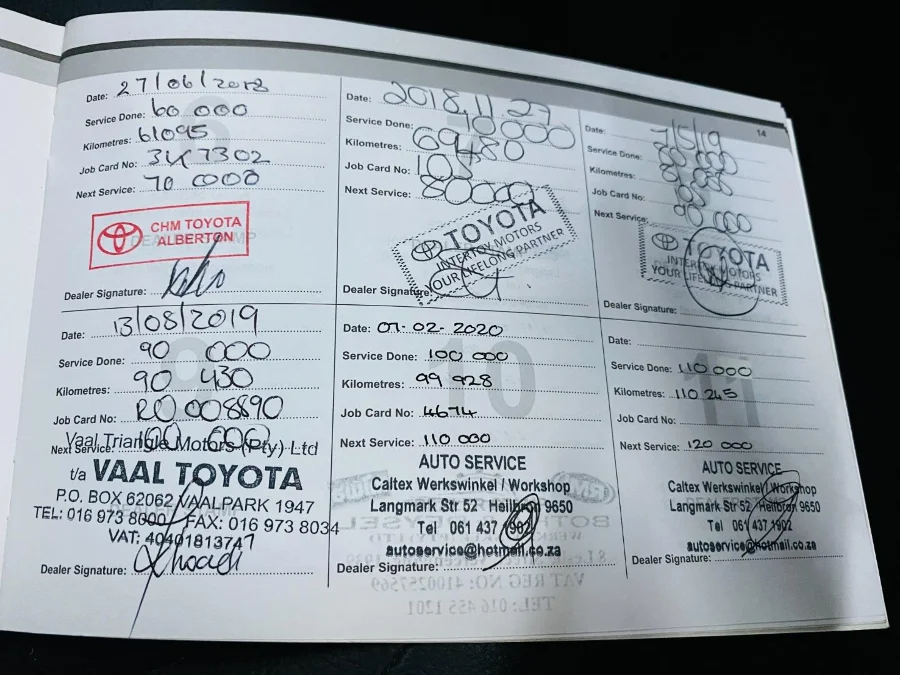 Date: 27/06/2018
Service Done: 60 000
Kilometres: 61095
Job Card No: 3K7302
Next Service: 70 0000
CHM TOYOTA
ALBERTON
Dealer Signature:
Date: 2018.11.27
Service Done: 70000
Kilometres: 69480
Job Card No: 103
Next Service: 80000
TOYOTA
INTERTOY MOTORS
YOUR LIFELONG PARTNER
Dealer Signature:
14
Date: 7/5/19
Service Done:
Kilometres:
Job Card No:
Next Service: 90 000
TOYOTA
INTERTOY MOTORS
YOUR LIFELONG PARTNER
Dealer Signature:
Date: 13/08/2019
Service Done: 90 000
Kilometres: 90 430
Job Card No: RO 008890
Next Service: 100 000
Vaal Triangle Motors (Pty) Ltd
t/a VAAL TOYOTA
P.O. BOX 62062 VAALPARK 1947
TEL: 016 973 8000 FAX: 016 973 8034
VAT: 40401813747
Dealer Signature:
10
Date: 07-02-2020
Service Done: 100 000
Kilometres: 99 928
Job Card No: 4674
Next Service: 110 000
AUTO SERVICE
Caltex Werkswinkel / Workshop
Langmark Str 52 Heilbron 9650
Tel 061 437 1902
autoservice@hotmail.co.za
Dealer Signature:
11
Date:
Service Done: 110 000
Kilometres: 110 245
Job Card No:
Next Service: 120 000
AUTO SERVICE
Caltex Werkswinkel / Workshop
Langmark Str 52 Heilbron 9650
Tel 061 437 1902
autoservice@hotmail.co.za
Dealer Signature: